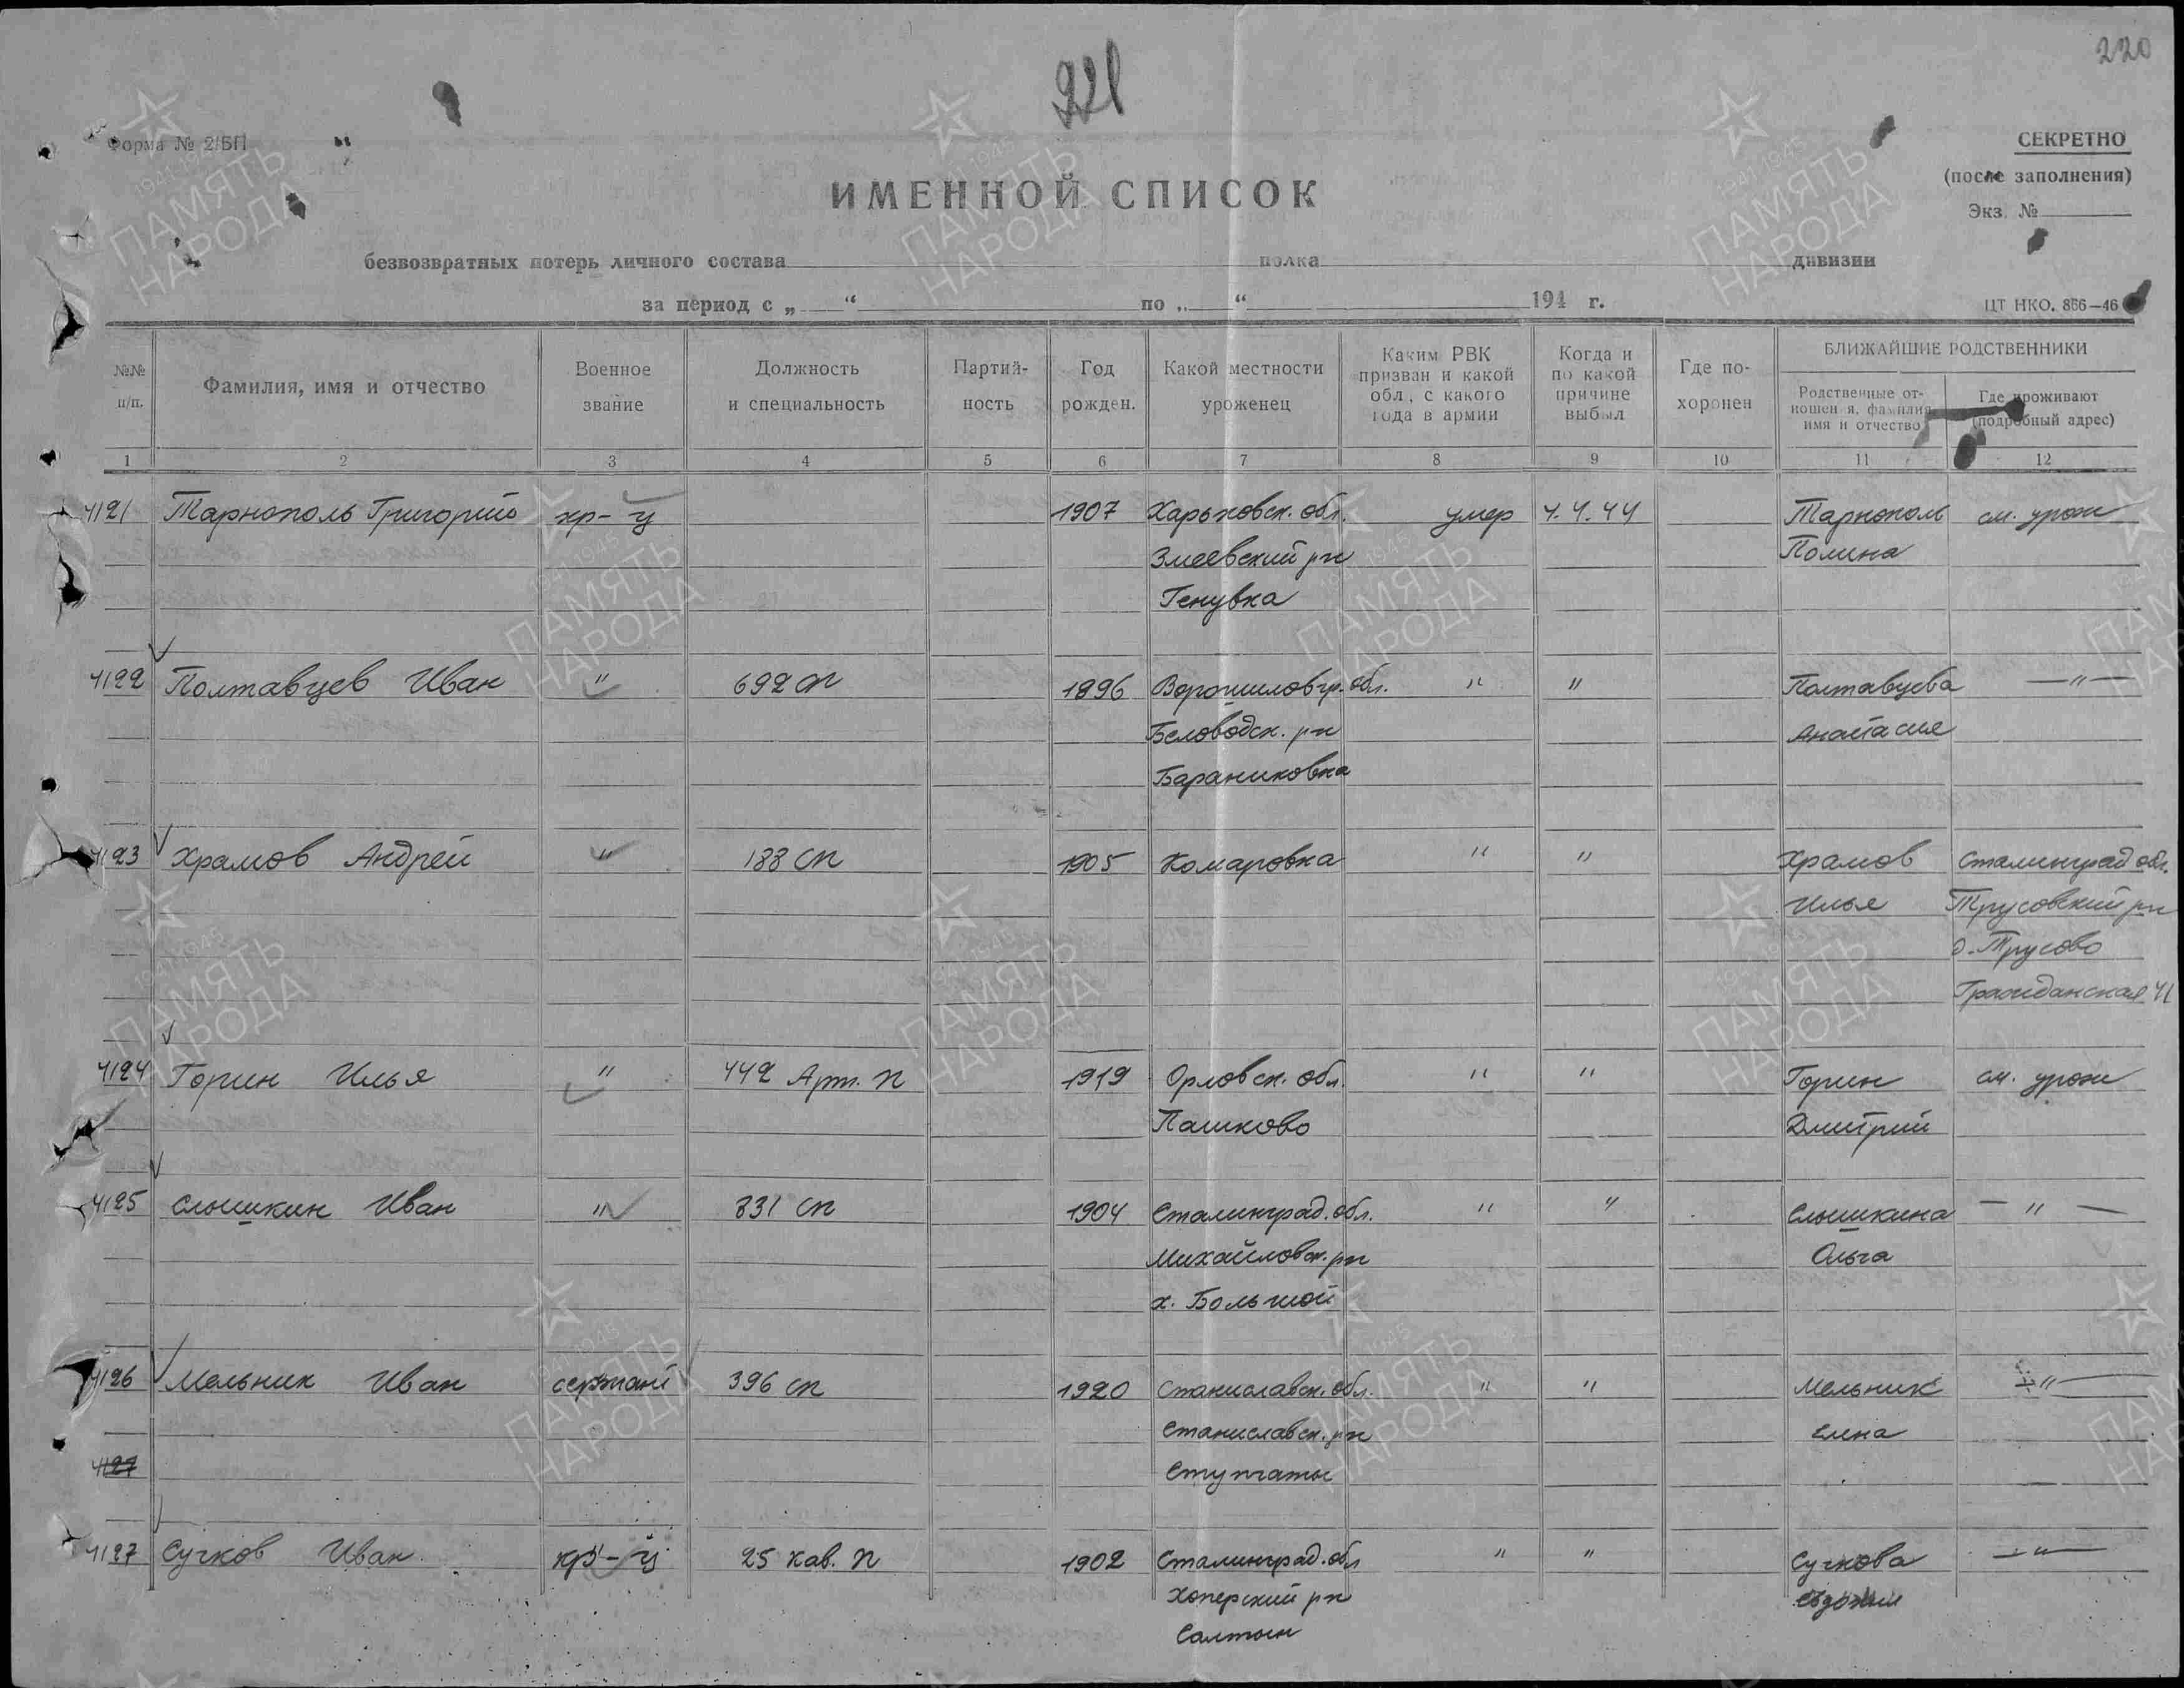 220
221
Форма № 2/БП
СЕКРЕТНО
(после заполнения)
Экз. №
ИМЕННОЙ СПИСОК
безвозвратных потерь личного состава полка дивизии
за период с „ “ по „ “ 194 г.
ЦТ НКО. 866—46
№№ п/п.
Фамилия, имя и отчество
Военное звание
Должность и специальность
Партий-ность
Год рожден.
Какой местности уроженец
Каким РВК призван и какой обл., с какого года в армии
Когда и по какой причине выбыл
Где по-хоронен
БЛИЖАЙШИЕ РОДСТВЕННИКИ
Родственные от-ношения, фамилия, имя и отчество
Где проживают (подробный адрес)
1 2 3 4 5 6 7 8 9 10 11 12
4121 Тарнополь Григорий кр-ц 1907 Харьковск. обл. умер 4.4.44 Тарнополь см. урож
Змеевский рн Полина
Генувка
4122 Полтавцев Иван " 692 сп 1896 Ворошиловгр. обл. " " Полтавцева —"—
Беловодск. рн Анастасия
Бараниковка
4123 Храмов Андрей " 188 сп 1905 Комаровка " " Храмов Сталинград обл.
Илья Трусовский рн
д. Трусово
Гражданская 41
4124 Горин Илья " 442 Арт. п 1919 Орловск. обл. " " Горин см. урож
Пашково Дмитрий
4125 Слышкин Иван " 831 сп 1904 Сталинград. обл. " " Слышкина — " —
Михайловск. рн Ольга
х. Большой
4126 Мельник Иван сержант 396 сп 1920 Станиславск. обл. " " Мельник —"—
Станиславск. рн Елена
4127
4127 Сучков Иван кр-ц 25 кав. п 1902 Сталинград. обл " " Сучкова —"—
Хоперский рн
Салтын
ПАМЯТЬ НАРОДА
1941-1945